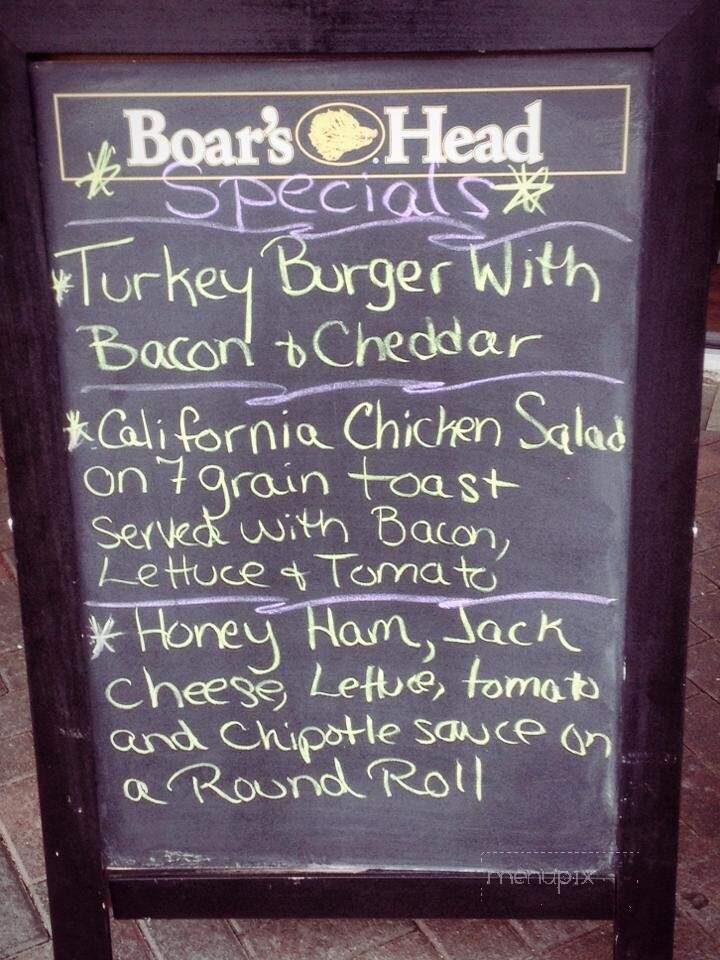 Boar's Head
* Specials *
* Turkey Burger With
Bacon & Cheddar
* California Chicken Salad
on 7 grain toast
served with Bacon,
Lettuce & Tomato
* Honey Ham, Jack
cheese, Lettuce, tomato
and chipotle sauce on
a Round Roll
menupix